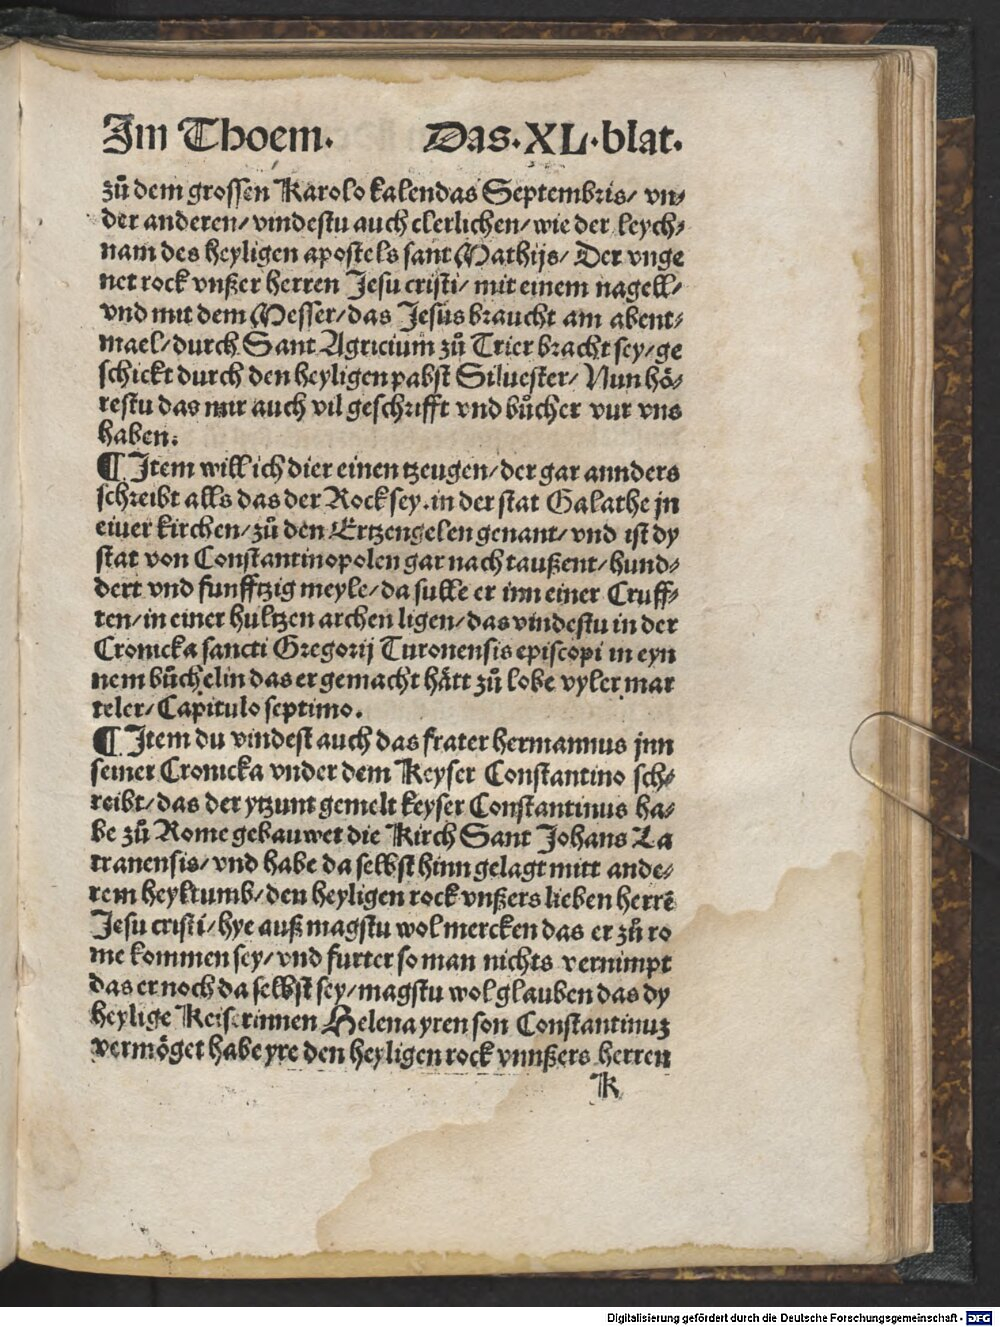 Im Thoem. Das·XL·blat.
zů dem grossen Karolo kalendas Septembris/ vn⸗
der anderen/ vindestu auch clerlichen/ wie der leych⸗
nam des heyligen apostels sant Mathijs/ Der vnge
net rock vnßer herren Jesu cristi/ mit einem nagell/
vnd mit dem Messer/ das Jesus braucht am abent⸗
mael/ durch Sant Agricium zů Trier bracht sey/ ge
schickt durch den heyligen pabst Siluester/ Nun hö⸗
restu das mir auch vil geschrifft vnd bůcher vur vns
haben.
¶ Item will ich dier einen tzeugen/ der gar annders
schreibt alls das der Rock sey. in der stat Galathe jn
einer kirchen/ zů den Ertzengelen genant/ vnd ist dy
stat von Constantinopolen gar nach taußent/ hund⸗
dert vnd funfftzig meyle/ da sulle er inn einer Cruff⸗
ten/ in einer hultzen archen ligen/ das vindestu in der
Cronicka sancti Gregorij Turonensis episcopi in eyn
nem bůchelin das er gemacht hått zů lobe vyler mar
teler/ Capitulo septimo.
¶ Item du vindest auch das frater hermannus jnn
seiner Cronicka vnder dem Keyser Constantino sch⸗
reibt/ das der ytzunt gemelt keyser Constantinus ha⸗
be zů Rome gebauwet die Kirch Sant Johans La
tranensis/ vnd habe da selbst hinn gelagt mitt ande⸗
rem heyltumb/ den heyligen rock vnßers lieben herrē
Jesu cristi/ hye auß magstu wol mercken das er zů ro
me kommen sey/ vnd furter so man nichts vernimpt
das er noch da selbst sey/ magstu wol glauben das dy
heylige Keiserinnen Helena yren son Constantinuz
vermöget habe yre den heyligen rock vnnßers herren
K
Digitalisierung gefördert durch die Deutsche Forschungsgemeinschaft - DFG